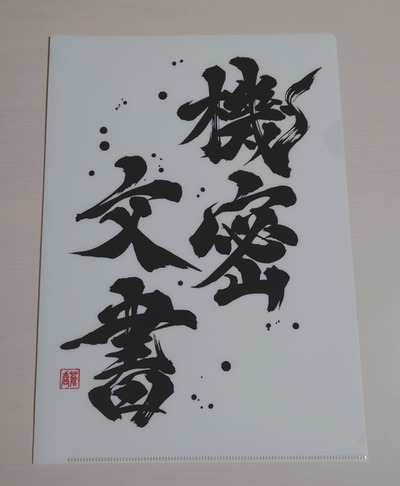 機密
文書